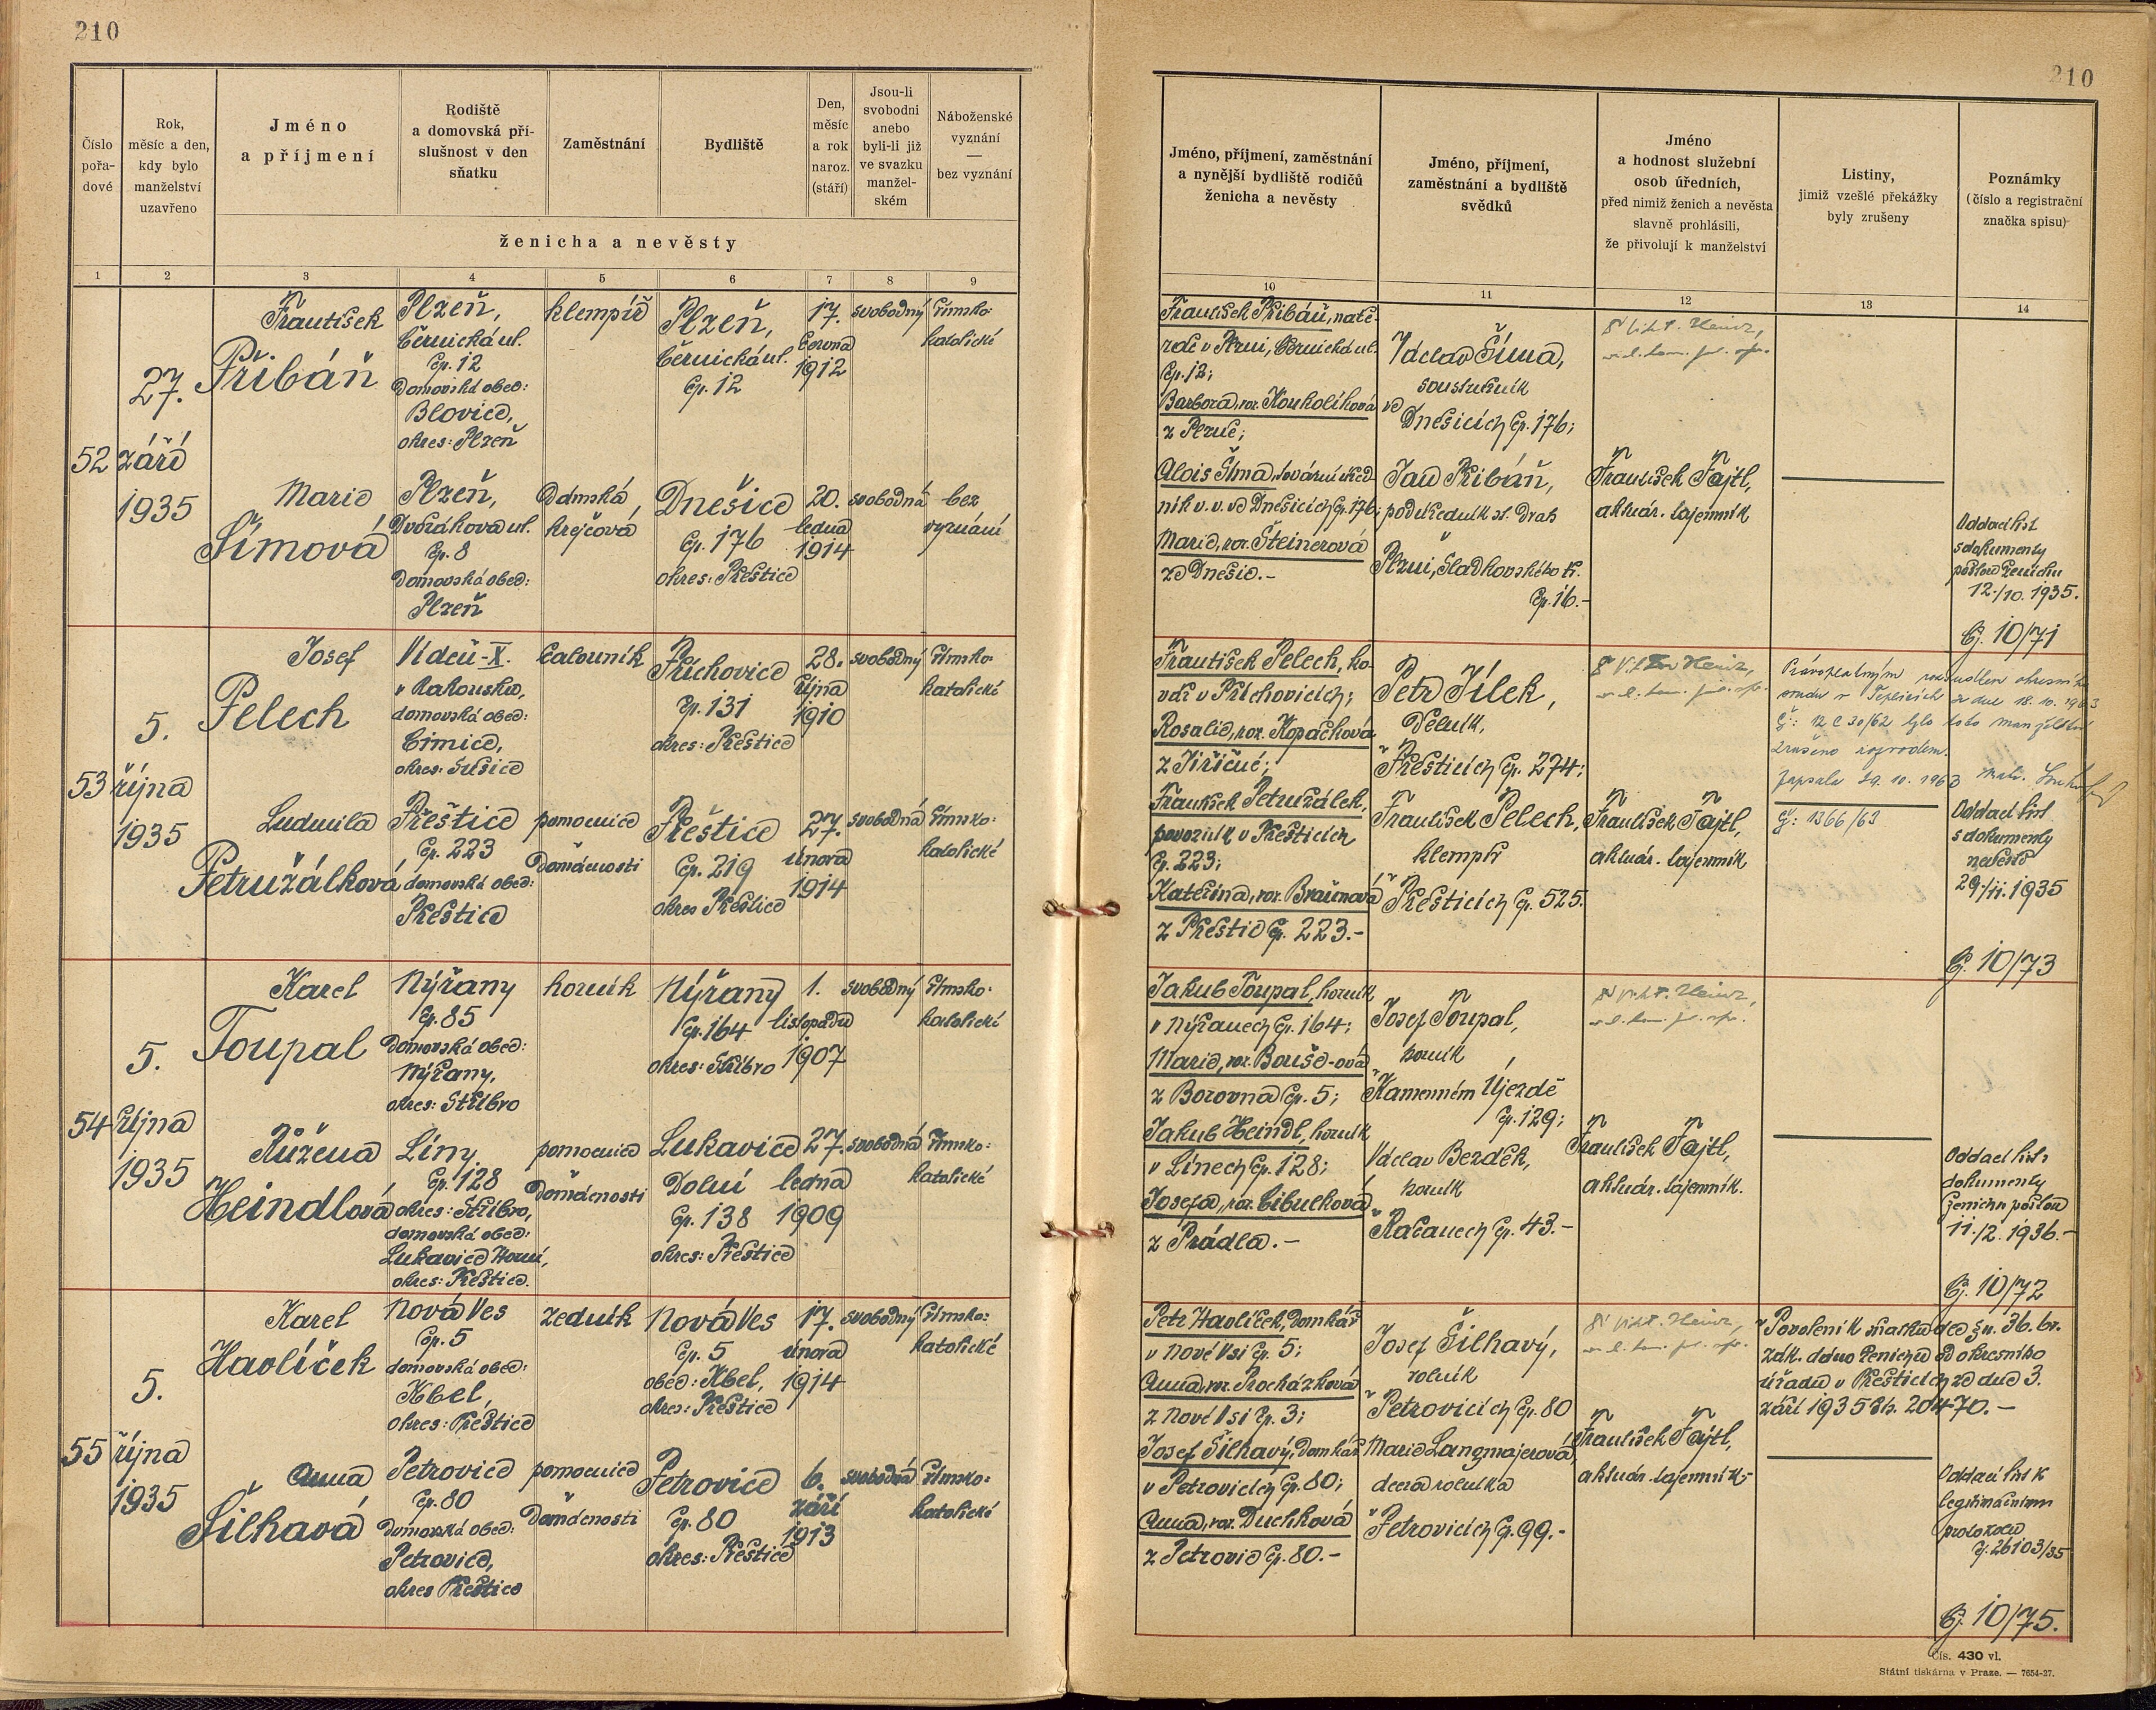 210
210
Číslo
pořa-
dové
Rok,
měsíc a den,
kdy bylo
manželství
uzavřeno
Jméno
a příjmení
Rodiště
a domovská pří-
slušnost v den
sňatku
Zaměstnání
Bydliště
Den,
měsíc
a rok
naroz.
(stáří)
Jsou-li
svobodni
anebo
byli-li již
ve svazku
manžel-
ském
Náboženské
vyznání
—
bez vyznání
ženicha a nevěsty
1 2 3 4 5 6 7 8 9
Jméno, příjmení, zaměstnání
a nynější bydliště rodičů
ženicha a nevěsty
Jméno, příjmení,
zaměstnání a bydliště
svědků
Jméno
a hodnost služební
osob úředních,
před nimiž ženich a nevěsta
slavně prohlásili,
že přivolují k manželství
Listiny,
jimiž vzešlé překážky
byly zrušeny
Poznámky
(číslo a registrační
značka spisu)
10 11 12 13 14
52
27.
září
1935
František
Přibáň
Plzeň,
Černická ul.
Čp. 12
Domovská obec:
Blovice,
okres: Plzeň
klempíř
Plzeň,
Černická ul.
Čp. 12
17.
června
1912
svobodný
římsko-
katolické
Marie
Šímová
Plzeň,
Dvořákova ul.
Čp. 8
Domovská obec:
Plzeň
Dámská
krejčová
Dnešice
Čp. 176
okres: Přeštice
20.
ledna
1914
svobodná
bez
vyznání
František Přibáň, natě-
rač v Plzni, Černická ul.
Čp. 12;
Barbora, roz. Koukolíková
z Plzně;
Alois Šíma, tovární úřed-
ník v. v. ve Dnešicích Čp. 176;
Marie, roz. Šteinerová
ze Dnešic.-
Václav Šíma,
soustružník
ve
Dnešicích Čp. 176;
Jan Přibáň,
podúředník st. drah
v
Plzni, Sladkovského tř.
Čp. 16.-
František Fajtl,
aktuár. tajemník
Oddací list
s dokumenty
poslán ženichu
12./10. 1935.
Čj. 10/71
53
5.
října
1935
Josef
Pelech
Vídeň-X.
v Rakousku,
domovská obec:
Čimice,
okres: Sušice
čalouník
Příchovice
Čp. 131
okres: Přeštice
28.
října
1910
svobodný
římsko-
katolické
Ludmila
Petružálková
Přeštice
Čp. 223
domovská obec:
Přeštice
pomocnice
v domácnosti
Přeštice
Čp. 219
okres Přeštice
27.
února
1914
svobodná
římsko-
katolické
František Pelech, ko-
vář v Příchovicích;
Rosalie, roz. Kopáčková
z Jiřičné;
František Petružálek,
povozník v Přešticích
Čp. 223;
Kateřina, roz. Braunová
z Přeštic Čp. 223.-
Petr Jílek,
dělník,
v
Přešticích Čp. 274;
František Pelech,
klempíř
v
Přešticích Čp. 525.
František Fajtl,
aktuár. tajemník
Právoplatným rozsudkem okresního
soudu v Teplicích ze dne 18. 10. 1963
č: 12 C 30/62 bylo toto manželství
zrušeno rozvodem.
Zapsala 29. 10. 1963 matr.
čj: 1366/63
Oddací list
s dokumenty
nevěstě
29./11. 1935
Čj. 10/73
54
5.
října
1935
Karel
Toupal
Nýřany
Čp. 85
Domovská obec:
Nýřany,
okres: Stříbro
horník
Nýřany
Čp. 164
okres: Stříbro
1.
listopadu
1907
svobodný
římsko-
katolické
Růžena
Heindlová
Líny
Čp. 128
okres: Stříbro,
domovská obec:
Lukavice Horní,
okres: Přeštice.
pomocnice
v domácnosti
Lukavice
Dolní
Čp. 138
okres: Přeštice
27.
ledna
1909
svobodná
římsko-
katolické
Jakub Toupal, horník
v Nýřanech Čp. 164;
Marie, roz. Bouše-ová
z Borovna Čp. 5;
Jakub Heindl, horník
v Línech Čp. 128;
Josefa, roz. Cibulková
z Prádla.-
Josef Toupal,
horník
v
Kamenném Újezdě
Čp. 129;
Václav Bezděk,
horník
v
Račanech Čp. 43.-
František Fajtl,
aktuár. tajemník.
Oddací list
dokumenty
ženichu poslán
11./2. 1936.-
Čj. 10/72
55
5.
října
1935
Karel
Havlíček
Nová Ves
Čp. 5
domovská obec:
Kbel,
okres: Přeštice
zedník
Nová Ves
Čp. 5
obec: Kbel,
okres: Přeštice
17.
února
1914
svobodný
římsko-
katolické
Anna
Šilhavá
Petrovice
Čp. 80
Domovská obec:
Petrovice,
okres Přeštice
pomocnice
v domácnosti
Petrovice
Čp. 80
okres: Přeštice
6.
září
1913
svobodná
římsko-
katolické
Petr Havlíček, domkář
v Nové Vsi Čp. 5;
Anna, roz. Procházková
z Nové Vsi Čp. 3;
Josef Šilhavý, domkář
v Petrovicích Čp. 80;
Anna, roz. Duchková
z Petrovic Čp. 80.-
Josef Šilhavý,
rolník
v
Petrovicích Čp. 80
Marie Langmajerová,
dcera rolníka
v
Petrovicích Čp. 99.-
František Fajtl,
aktuár. tajemník.-
Povolení k sňatku dle §u. 36. br.
zák. dáno ženichu od okresního
úřadu v Přešticích ze dne 3.
září 1935 čís. 20470.-
Oddací list k
legitimačnímu
protokolu
Čj. 26103/35
Čj. 10/75.
Čís. 430 vl.
Státní tiskárna v Praze. — 7654-27.